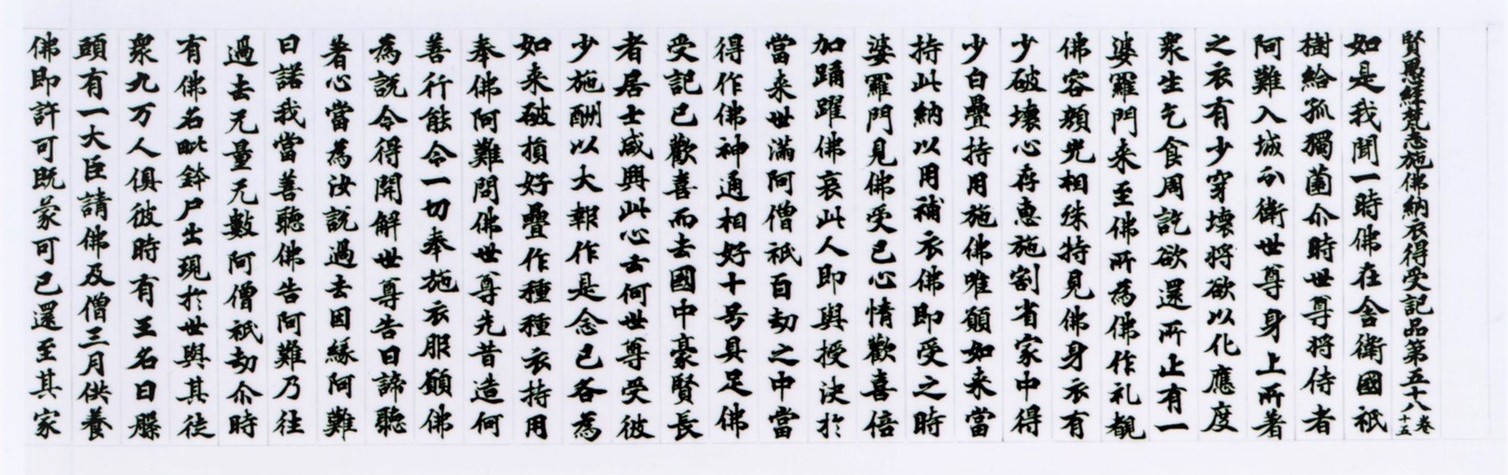 賢愚経梵志施佛納衣得受記品第五十八 卷十五
如是我聞一時佛在舎衛國祇
樹給孤獨薗尒時世尊将侍者
阿難入城尒衛世尊身上所著
之衣有少穿壊将欲以化應度
衆生乞食周訖欲還所止有一
婆羅門来至佛所為佛作礼覩
佛容顔光相殊特見佛身衣有
少破壊心存恵施割省家中得
少白疊持用施佛唯願如来當
持此納以用補衣佛即受之時
婆羅門見佛受已心情歡喜倍
加踊躍佛哀此人即與授決於
當来世滿阿僧祇百劫之中當
得作佛神通相好十号具足佛
受記已歡喜而去國中豪賢長
者居士咸興此心云何世尊受彼
少施酬以大報作是念已各為
如来破損好疊作種種衣持用
奉佛阿難問佛世尊先昔造何
善行能令一切奉施衣服願佛
為說令得開解世尊告曰諦聽
著心當為汝說過去因縁阿難
曰諾我當善聽佛告阿難乃往
過去无量无數阿僧祇劫尒時
有佛名毗鉢尸出現於世與其徒
衆九万人俱彼時有王名曰槃
頭有一大臣請佛及僧三月供養
佛即許可既蒙可已還至其家